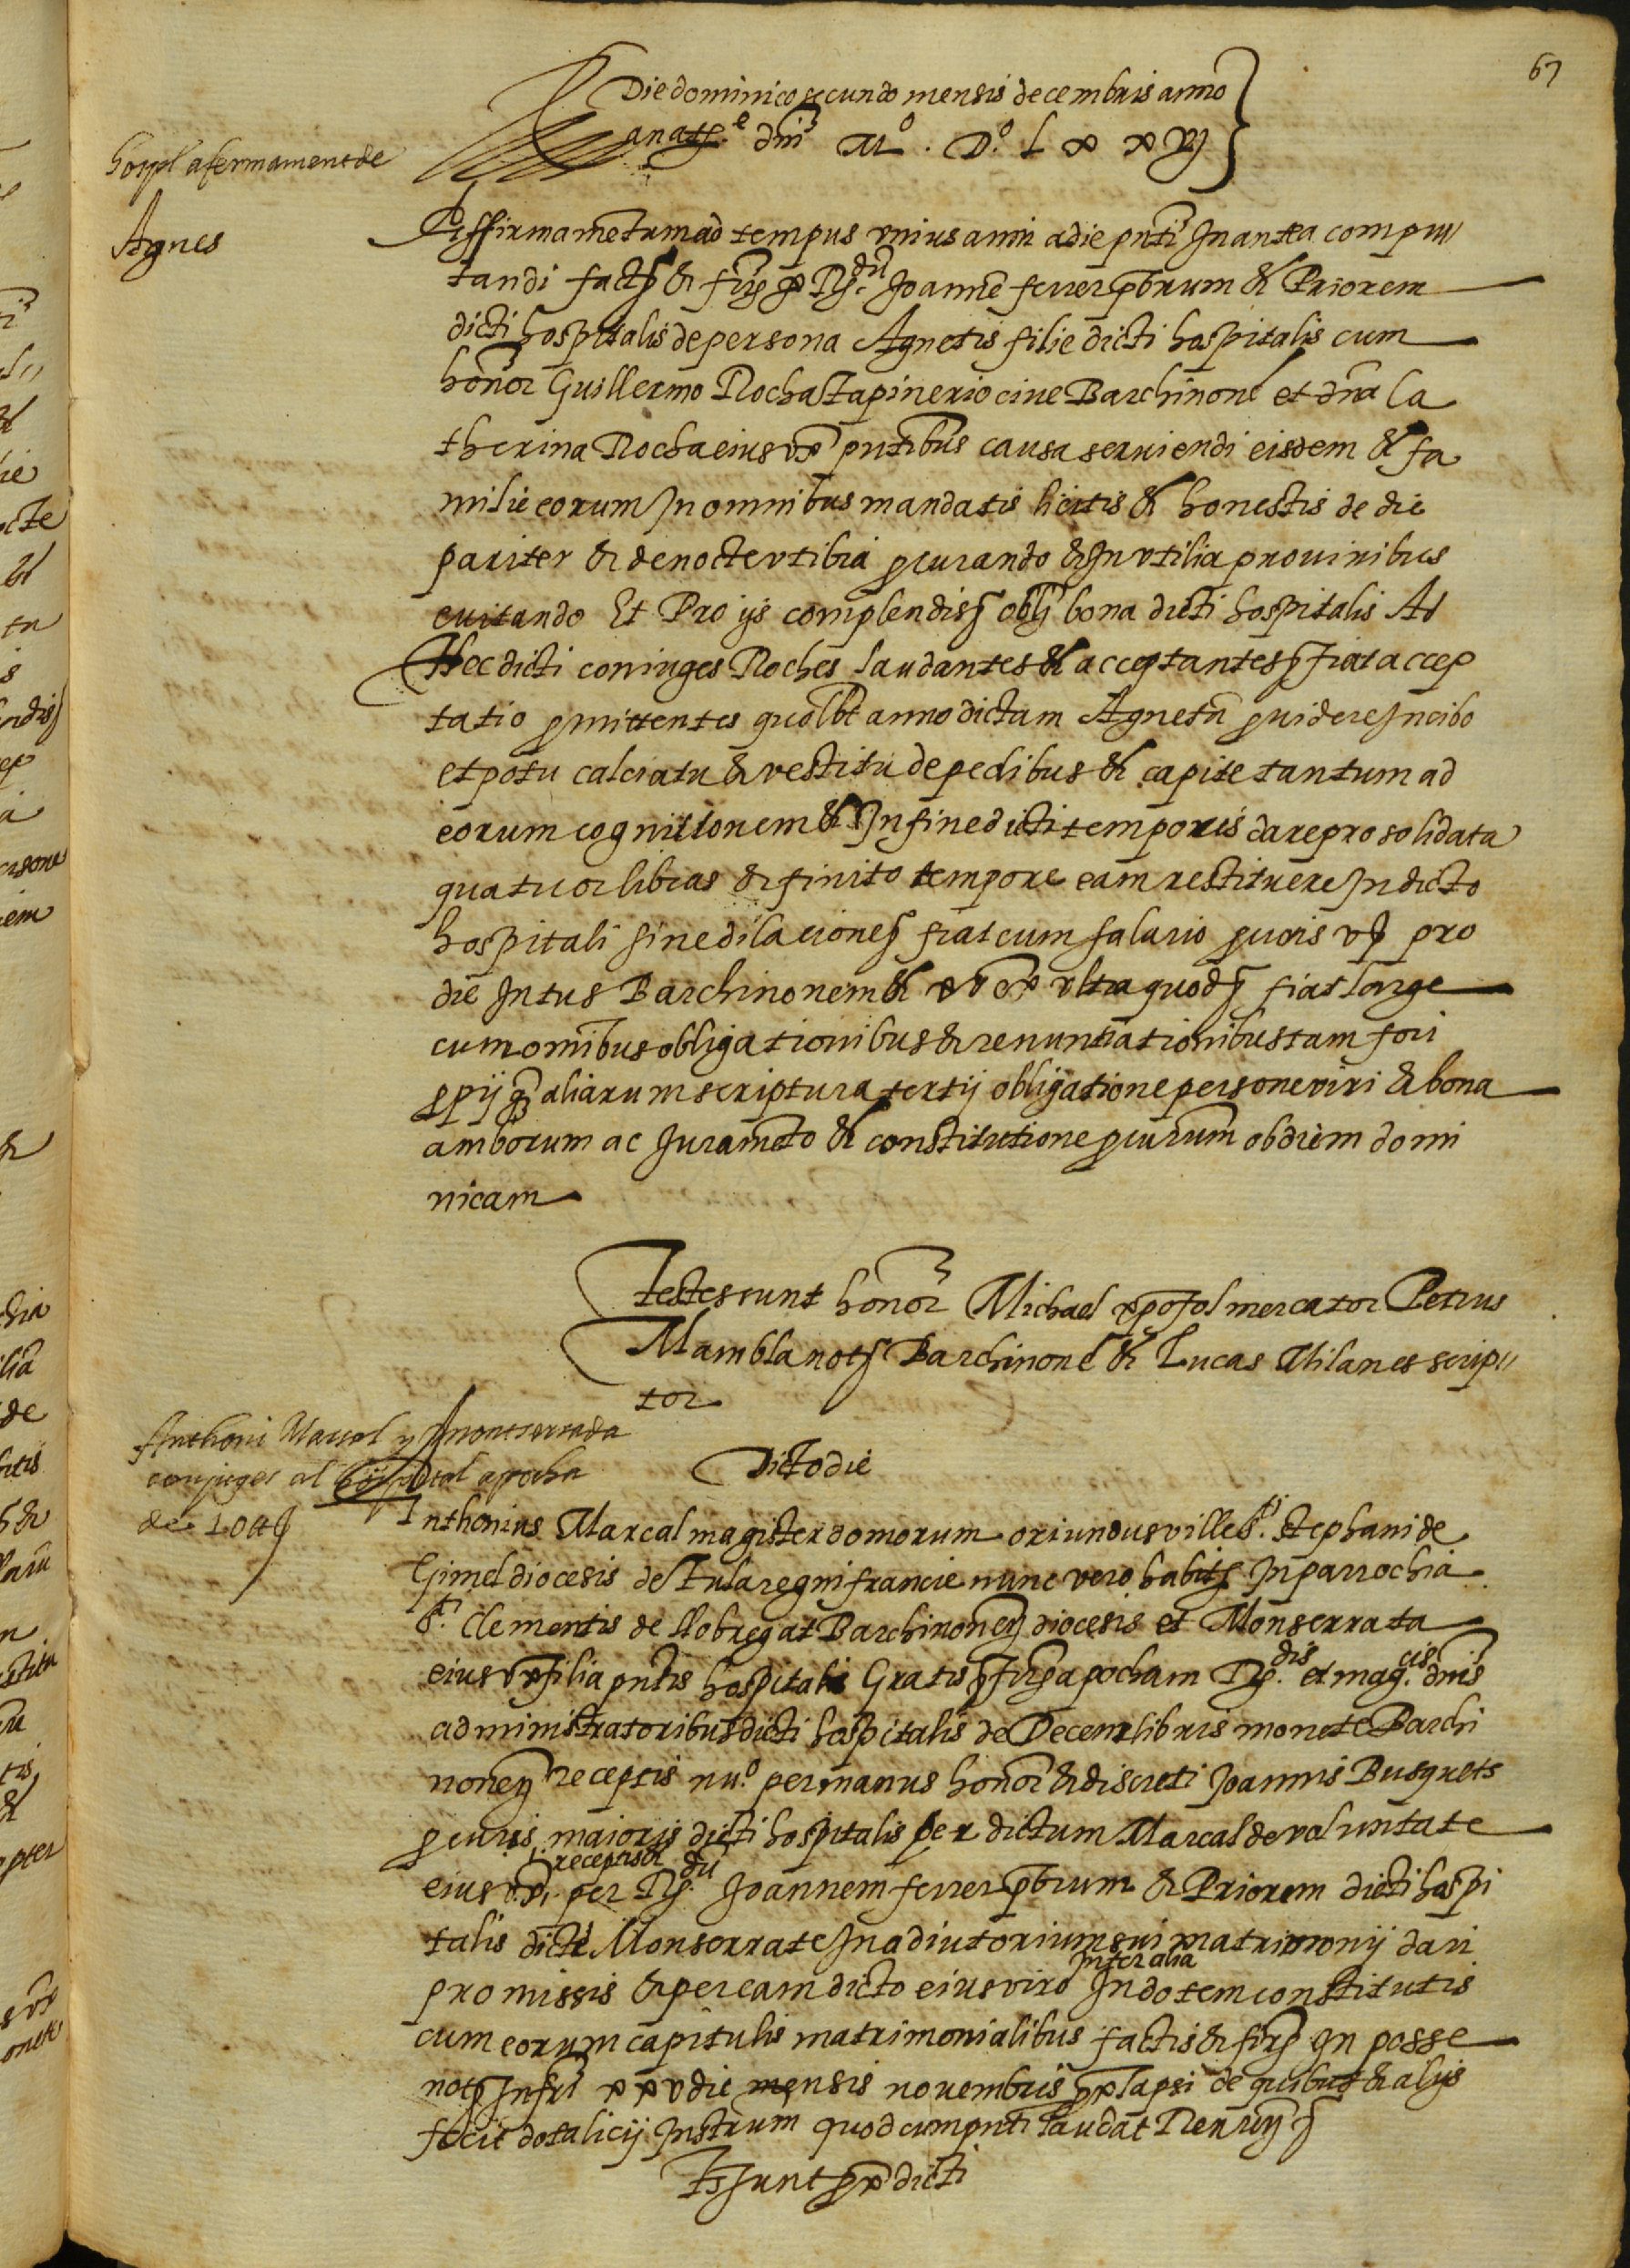 67
Die dominico secundo mensis decembris anno
a nat.e dni Mº. Dº. L x x vj
hospl afermament de
Agnes
Affirmametum ad tempus vnius anni a die pnti In antea compu
tandi fact & firm per Rdu. Joanne ferrer pbrum & Priorem
dicti hospitalis de persona Agnetis filie dicti hospitalis cum
honor Guillermo Rocha Tapinerio ciue Barchinone et dna Ca
therina Rocha eius vx pntibus causa seruiendi eisdem & fa
milie eorum In omnibus mandatis licitis & honestis de die
pariter & de nocte vtibia pcurando & In vtilia pro viribus
euitando Et Pro ijs complendis oblig bona dicti hospitalis Ad
Hec dicti coniuges Roches laudantes & acceptantes fiat accep
tatio pmittentes quolbt anno dictam Agneta puidere In cibo
et potu calciatu & vestitu de pedibus & capite tantum ad
eorum cognitionem & In fine dicti temporis dare pro solidata
quatuor libras & finito tempore eam restituere In dicto
hospitali sine dilacione fiat cum salario pcuris v pro
die Intus Barchinonem & x ex vltra quod fiat large
cum omibus obligationibus & renuntiationibus tam fori
pprij q aliarum scriptura tertij obligatione persone viri & bona
amborum ac Jurameto & constitutione pcurum ob diem domi
nicam
Testes sunt honor Michael xpofol mercator Petrus
Mambla not Barchinone & Lucas Milanes scrip
tor
Anthoni Marsal y Montserrada
conjuges al hospital apocha
de 10 ll
Dicto die
Anthonius Marcal magister domorum oriundus ville Sti. Stephani de
Gimel diocesis de Tula regni francie nunc vero habit In parrochia
Sti. Clementis de llobregat Barchinone diocesis et Monserrata
eius vx filia pntis hospitalis Gratis firm apocham Rdis. et magcis. dnis
administratoribus dicti hospitalis de Decem libris monete Barchi
none receptis nu.º per manus honor & discreti Joannis Busquets
pcuris maioris dicti hospitalis per dictum Marcal de voluntate
receptis &
eius vx. per Rdu. Joannem ferrer pbrum & Priorem dicti hospi
talis dicte Monserrate In adiutorium sui matrimonij dari
Inter alia
promissis & per eam dicto eius viro In dotem constitutis
cum eorum capitulis matrimonialibus factis & firm In posse
not Infri x x v die mensis nouembris pxlapsi de quibus & alijs
fecit dotalicij Instrum quod cum pnti laudat Renun
Ts sunt pxdicti